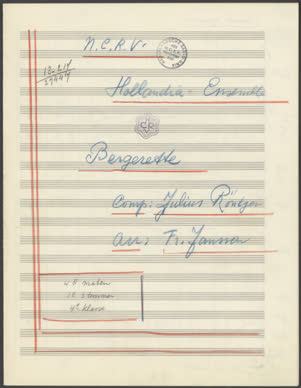 N.C.R.V.
Hollandia-Ensemble
Bergerette
Comp: Julius Röntgen
arr: Fr. Jansson
48 maten
10 stemmen
4e klasse